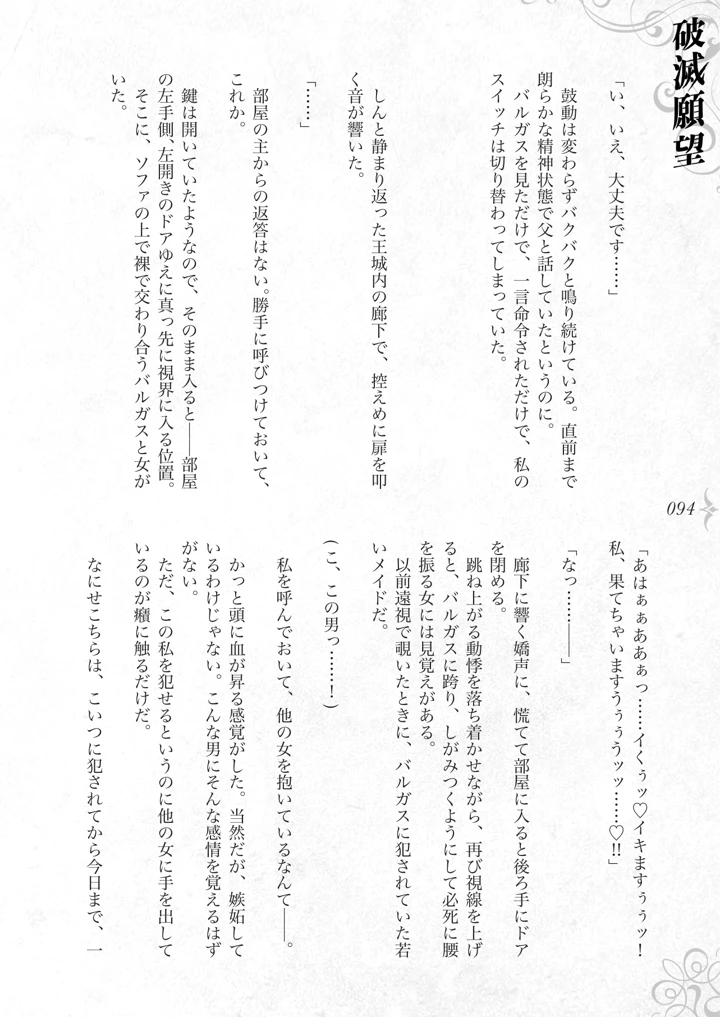 破滅願望
「い、いえ、大丈夫です……」
鼓動は変わらずバクバクと鳴り続けている。直前まで
朗らかな精神状態で父と話していたというのに。
バルガスを見ただけで、一言命令されただけで、私の
スイッチは切り替わってしまっていた。
しんと静まり返った王城内の廊下で、控えめに扉を叩
く音が響いた。
「……」
部屋の主からの返答はない。勝手に呼びつけておいて、
これか。
鍵は開いていたようなので、そのまま入ると――部屋
の左手側、左開きのドアゆえに真っ先に視界に入る位置。
そこに、ソファの上で裸で交わり合うバルガスと女が
いた。
094
「あはぁぁああぁっ……イくぅッ♡イキますぅぅッ！
私、果てちゃいますうぅぅうッッ……♡!!」
「なっ………――」
廊下に響く嬌声に、慌てて部屋に入ると後ろ手にドア
を閉める。
跳ね上がる動悸を落ち着かせながら、再び視線を上げ
ると、バルガスに跨り、しがみつくようにして必死に腰
を振る女には見覚えがある。
以前遠視で覗いたときに、バルガスに犯されていた若
いメイドだ。
(こ、この男っ……！)
私を呼んでおいて、他の女を抱いているなんて――。
かっと頭に血が昇る感覚がした。当然だが、嫉妬して
いるわけじゃない。こんな男にそんな感情を覚えるはず
がない。
ただ、この私を犯せるというのに他の女に手を出して
いるのが癪に触るだけだ。
なにせこちらは、こいつに犯されてから今日まで、一